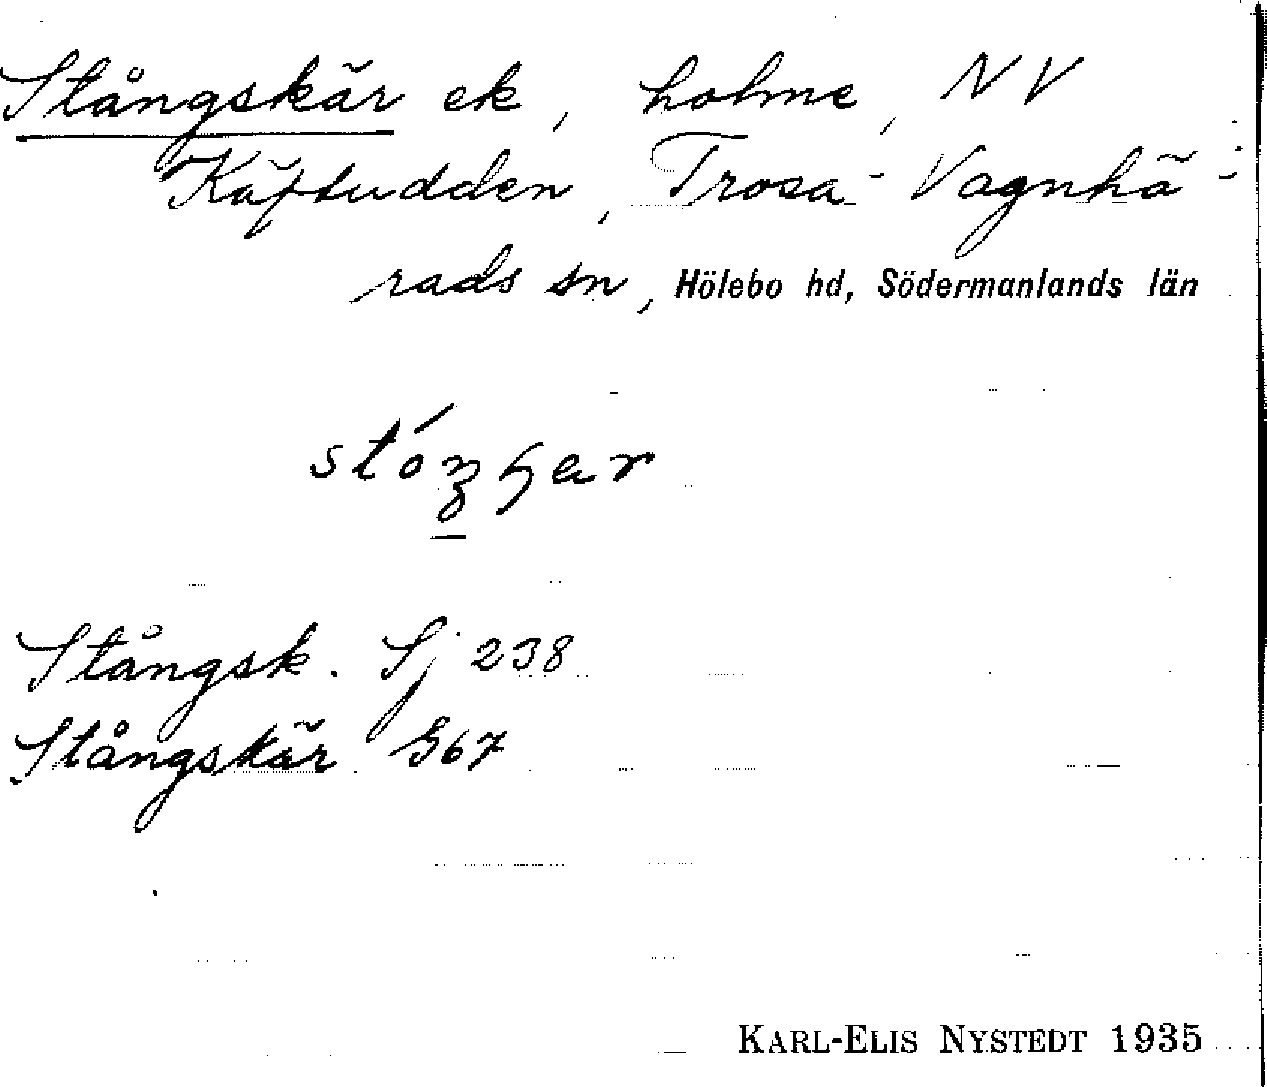 Stångskär ek, holme, NV
Käftudden, Trosa-Vagnhä-
rads sn, Hölebo hd, Södermanlands län
Stångsk. Sj 238
Stångskär G67
KARL-ELIS NYSTEDT 1935